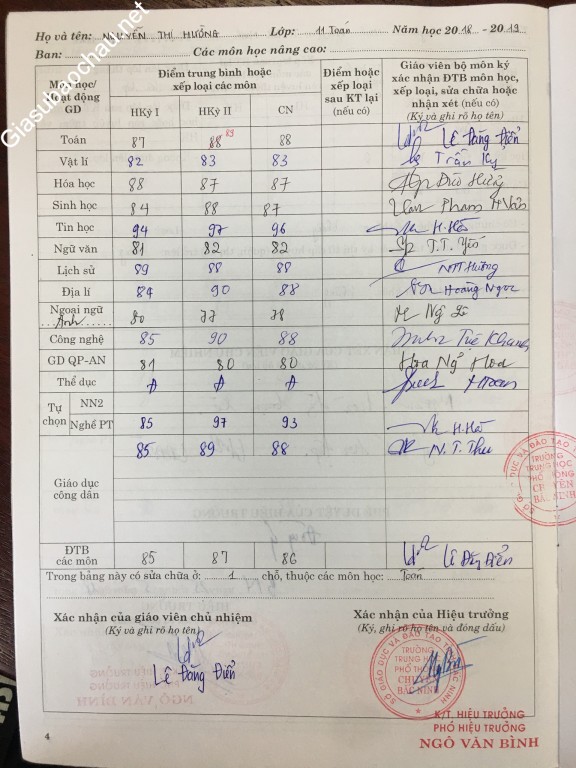 Giasutaogiochau.net
Họ và tên: NGUYỄN THỊ HƯỜNG Lớp: 11 Toán Năm học 2018 - 2019
Ban: Các môn học nâng cao:
Môn học/ Hoạt động GD Điểm trung bình hoặc xếp loại các môn Điểm hoặc xếp loại sau KT lại (nếu có) Giáo viên bộ môn ký xác nhận ĐTB môn học, xếp loại, sửa chữa hoặc nhận xét (nếu có) (Ký và ghi rõ họ tên)
HKỳ I HKỳ II CN
Toán 87 88 89 88 Lê Đăng Điển
Vật lí 82 83 83 Trần Kỳ
Hóa học 88 87 87
Sinh học 84 88 87 Phạm
Tin học 94 97 96 H. Hà
Ngữ văn 81 82 82 T.T. Yến
Lịch sử 89 88 88 NTT Hường
Địa lí 84 90 88 Hoàng Ngọc
Ngoại ngữ Anh 80 77 78
Công nghệ 85 90 88 Tuệ Khanh
GD QP-AN 81 80 80 Hoa Ngô Hoa
Thể dục Đ Đ Đ
Tự chọn NN2
Nghề PT 85 97 93 H. Hà
Giáo dục công dân 85 89 88 N.T. Thu
ĐTB các môn 85 87 86 Lê Đăng Điển
Trong bảng này có sửa chữa ở: 1 chỗ, thuộc các môn học: Toán
Xác nhận của giáo viên chủ nhiệm
(Ký và ghi rõ họ tên)
Lê Đăng Điển
Xác nhận của Hiệu trưởng
(Ký, ghi rõ họ tên và đóng dấu)
SỞ GIÁO DỤC VÀ ĐÀO TẠO BẮC NINH
TRƯỜNG
TRUNG HỌC
PHỔ THÔNG
CHUYÊN
BẮC NINH
K/T. HIỆU TRƯỞNG
PHÓ HIỆU TRƯỞNG
NGÔ VĂN BÌNH
4